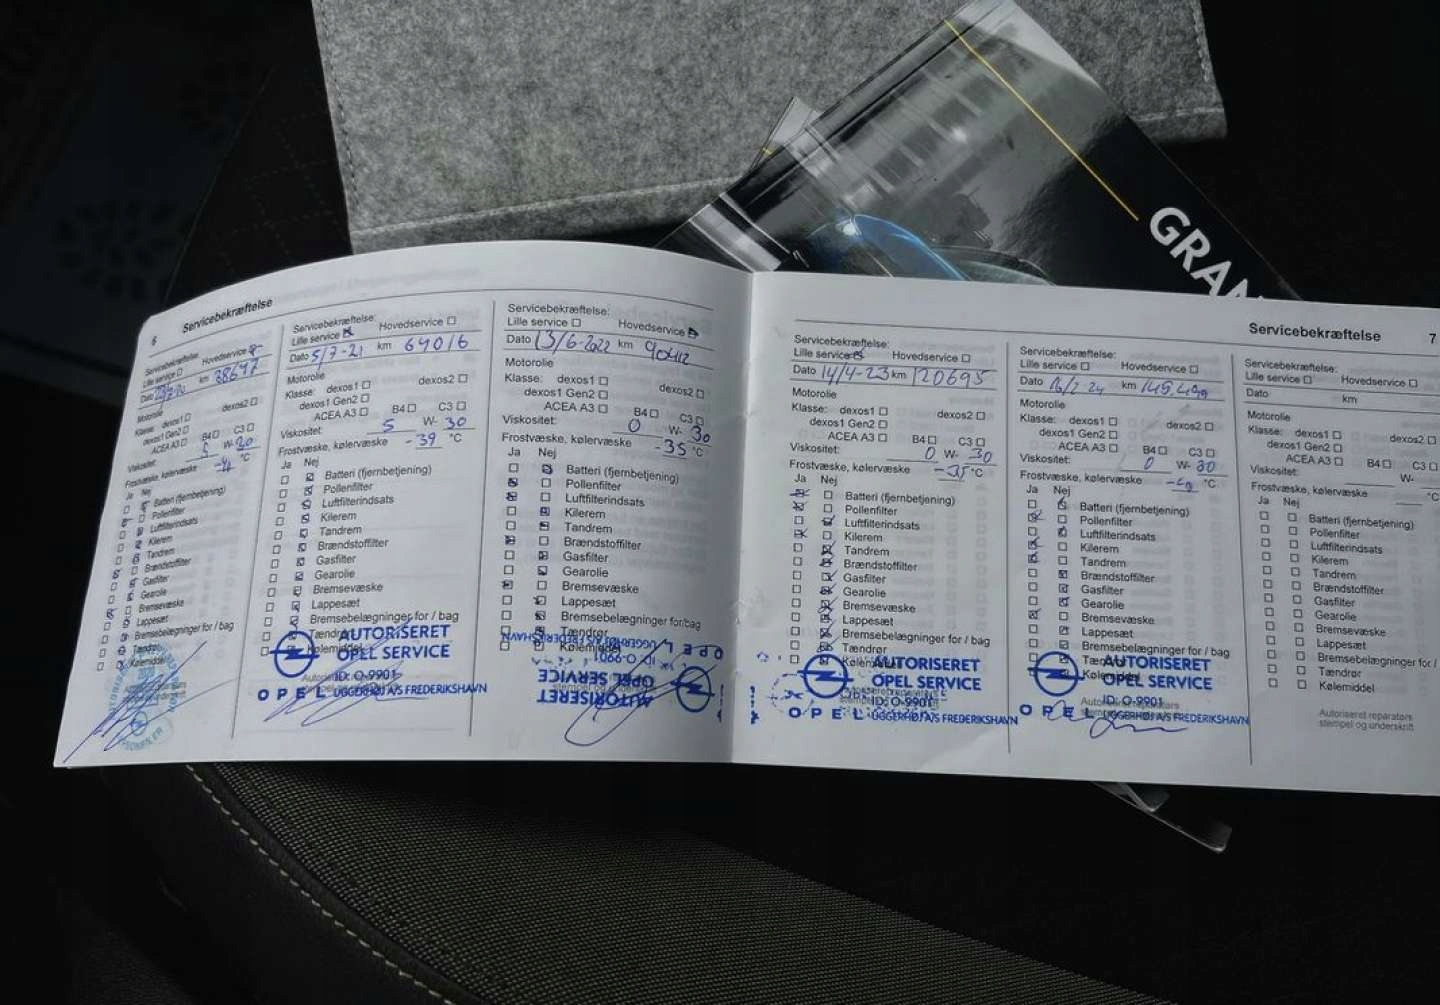 GRAN
6 Servicebekræftelse
Servicebekræftelse:
Lille service Hovedservice
Dato km 38697
Motorolie
Klasse: dexos1 dexos2
dexos1 Gen2
ACEA A3 B4 C3
Viskositet: 5 W- 30
Frostvæske, kølervæske °C
Ja Nej
Batteri (fjernbetjening)
Pollenfilter
Luftfilterindsats
Kilerem
Tandrem
Brændstoffilter
Gasfilter
Gearolie
Bremsevæske
Lappesæt
Bremsebelægninger for / bag
Tændrør
Kølemiddel
Servicebekræftelse:
Lille service Hovedservice
Dato 5/7-21 km 64016
Motorolie
Klasse: dexos1 dexos2
dexos1 Gen2
ACEA A3 B4 C3
Viskositet: 5 W- 30
Frostvæske, kølervæske -39 °C
Ja Nej
Batteri (fjernbetjening)
Pollenfilter
Luftfilterindsats
Kilerem
Tandrem
Brændstoffilter
Gasfilter
Gearolie
Bremsevæske
Lappesæt
Bremsebelægninger for / bag
Tændrør
Kølemiddel
AUTORISERET
OPEL SERVICE
ID: O-9901
OPEL UGGERHØJ A/S FREDERIKSHAVN
Servicebekræftelse:
Lille service Hovedservice
Dato 13/6-2022 km
Motorolie
Klasse: dexos1 dexos2
dexos1 Gen2
ACEA A3 B4 C3
Viskositet: 0 W- 30
Frostvæske, kølervæske -35 °C
Ja Nej
Batteri (fjernbetjening)
Pollenfilter
Luftfilterindsats
Kilerem
Tandrem
Brændstoffilter
Gasfilter
Gearolie
Bremsevæske
Lappesæt
Bremsebelægninger for/bag
Tændrør
Kølemiddel
OPEL UGGERHØJ A/S FREDERIKSHAVN
ID: O-9901
OPEL SERVICE
AUTORISERET
Servicebekræftelse 7
Servicebekræftelse:
Lille service Hovedservice
Dato 14/4-23 km 120695
Motorolie
Klasse: dexos1 dexos2
dexos1 Gen2
ACEA A3 B4 C3
Viskositet: 0 W- 30
Frostvæske, kølervæske -35 °C
Ja Nej
Batteri (fjernbetjening)
Pollenfilter
Luftfilterindsats
Kilerem
Tandrem
Brændstoffilter
Gasfilter
Gearolie
Bremsevæske
Lappesæt
Bremsebelægninger for / bag
Tændrør
Kølemiddel
AUTORISERET
OPEL SERVICE
ID: O-9901
OPEL UGGERHØJ A/S FREDERIKSHAVN
Servicebekræftelse:
Lille service Hovedservice
Dato km
Motorolie
Klasse: dexos1 dexos2
dexos1 Gen2
ACEA A3 B4 C3
Viskositet: 0 W- 30
Frostvæske, kølervæske °C
Ja Nej
Batteri (fjernbetjening)
Pollenfilter
Luftfilterindsats
Kilerem
Tandrem
Brændstoffilter
Gasfilter
Gearolie
Bremsevæske
Lappesæt
Bremsebelægninger for / bag
Tændrør
Kølemiddel
AUTORISERET
OPEL SERVICE
ID: O-9901
OPEL UGGERHØJ A/S FREDERIKSHAVN
Servicebekræftelse:
Lille service Hovedservice
Dato km
Motorolie
Klasse: dexos1 dexos2
dexos1 Gen2
ACEA A3 B4 C3
Viskositet: W-
Frostvæske, kølervæske °C
Ja Nej
Batteri (fjernbetjening)
Pollenfilter
Luftfilterindsats
Kilerem
Tandrem
Brændstoffilter
Gasfilter
Gearolie
Bremsevæske
Lappesæt
Bremsebelægninger for /
Tændrør
Kølemiddel
Autoriseret reparatørs
stempel og underskrift